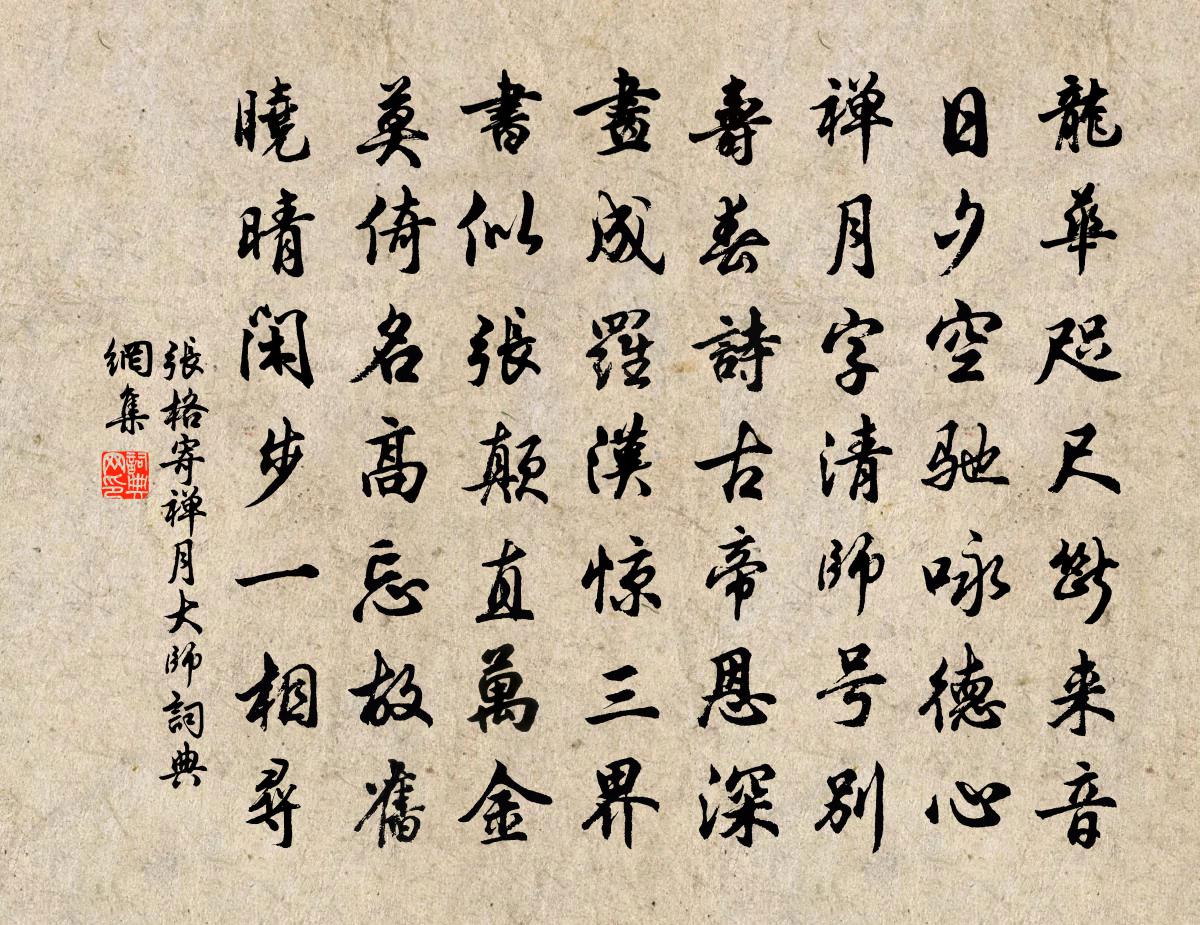 龍華咫尺斷来音
日夕空馳咏德心
禅月字清師号別
壽春詩古帝恩深
畫成羅漢惊三界
書似張顛直萬金
莫倚名高忘故舊
曉晴閑步一相尋
張格寄禅月大師詞典
網集
詞典
网印